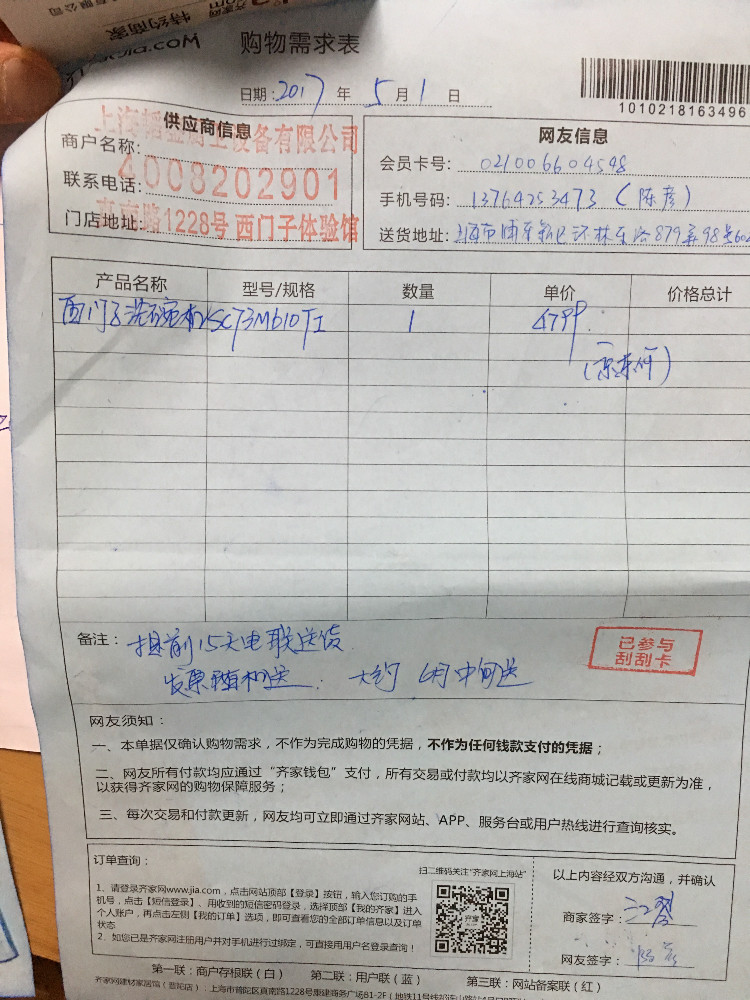 特约商家
购物需求表
日期：2017年5月1日
1010218163496
供应商信息
商户名称：
联系电话：
门店地址：
设备有限公司
4008202901
南路1228号 西门子体验馆
网友信息
会员卡号：021006604598
手机号码：13764253473（陈彦）
送货地址：上海市浦东新区环林东路879弄98号602
产品名称 型号/规格 数量 单价 价格总计
西门子洗碗机 SC73M610TI 1 4799.
（京东价）
备注：提前15天电联送货
发票随机送. 大约6月中旬送
已参与
刮刮卡
网友须知：
一、本单据仅确认购物需求，不作为完成购物的凭据，不作为任何钱款支付的凭据；
二、网友所有付款均应通过“齐家钱包”支付，所有交易或付款均以齐家网在线商城记载或更新为准，
以获得齐家网的购物保障服务；
三、每次交易和付款更新，网友均可立即通过齐家网站、APP、服务台或用户热线进行查询核实。
订单查询：
扫二维码关注“齐家网上海站”
1、请登录齐家网www.jia.com，点击网站顶部【登录】按钮，输入您订购的手
机号，点击【短信登录】、用收到的短信密码登录，选择顶部【我的齐家】进入
个人账户，再点击左侧【我的订单】选项，即可查看您的全部订单信息以及订单
状态
2、如您已是齐家网注册用户并对手机进行过绑定，可直接用用户名登录查询！
齐家
以上内容经双方沟通，并确认
商家签字：
网友签字：
第一联：商户存根联（白） 第二联：用户联（蓝） 第三联：网站备案联（红）
齐家网建材家居馆（普陀店）：上海市普陀区真南路1228号康建商务广场B1-2F